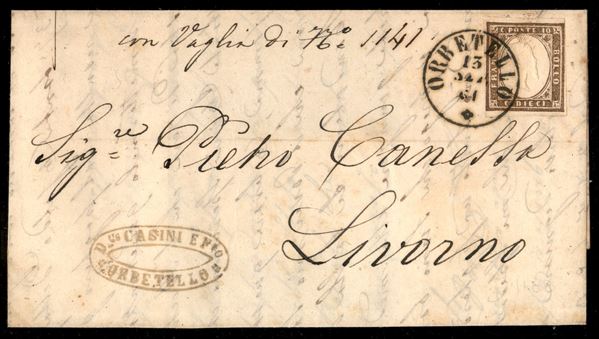 con Vaglia di N.o 1141
ORBETELLO
13
SET
61
C. POSTE 10
BOLLO
C. DIECI
FRAN
Sig.re Pietro Canessa
Livorno
D.co CASINI E F.io
ORBETELLO